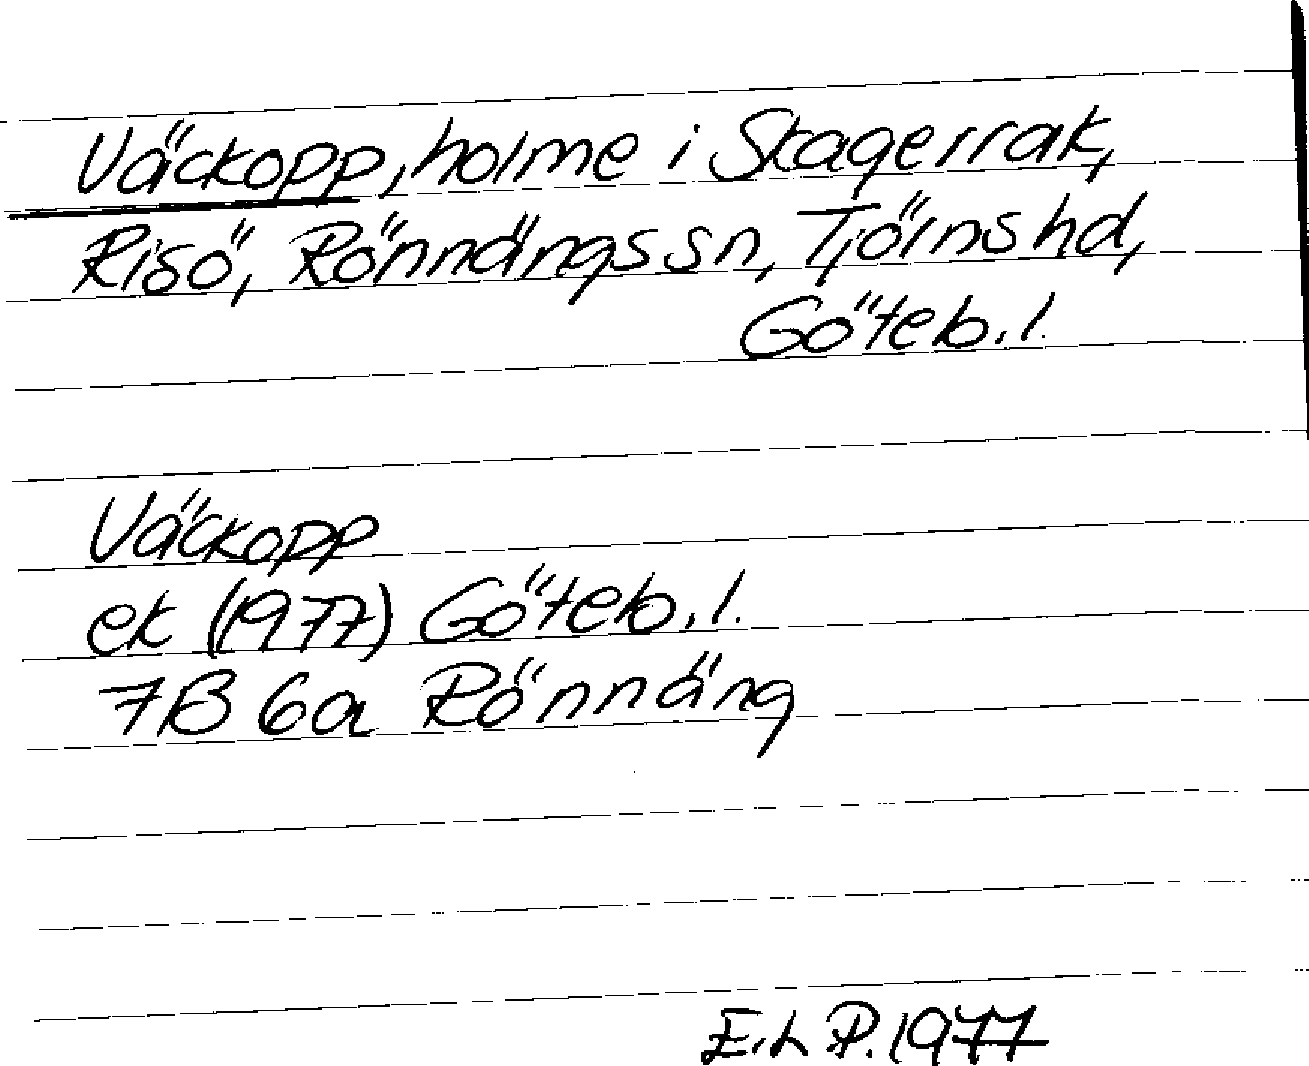 Väckopp, holme i Skagerrak,
Risö, Rönnängs sn, Tjörns hd,
Göteb. l.
Väckopp
ek (1977) Göteb. l.
7B 6a Rönnäng
E.L P. 1977